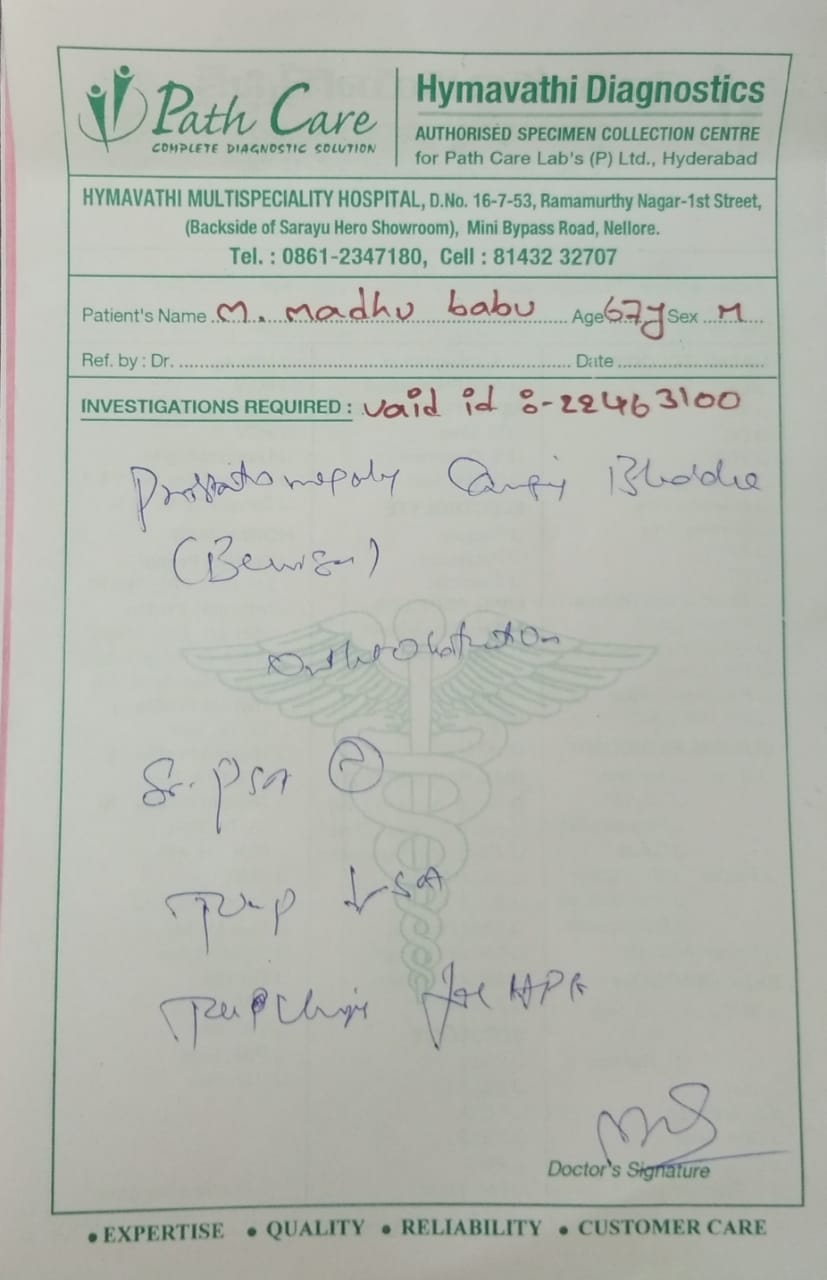 Path Care
COMPLETE DIAGNOSTIC SOLUTION
Hymavathi Diagnostics
AUTHORISED SPECIMEN COLLECTION CENTRE
for Path Care Lab's (P) Ltd., Hyderabad
HYMAVATHI MULTISPECIALITY HOSPITAL, D.No. 16-7-53, Ramamurthy Nagar-1st Street,
(Backside of Sarayu Hero Showroom), Mini Bypass Road, Nellore.
Tel. : 0861-2347180, Cell : 81432 32707
Patient's Name M. madhu babu Age 67y Sex M
Ref. by : Dr. Date
INVESTIGATIONS REQUIRED : vaid id :-22463100
Prostatomegaly
Sr. PSA
TURP
TURP Chips for HPE
Doctor's Signature
• EXPERTISE • QUALITY • RELIABILITY • CUSTOMER CARE